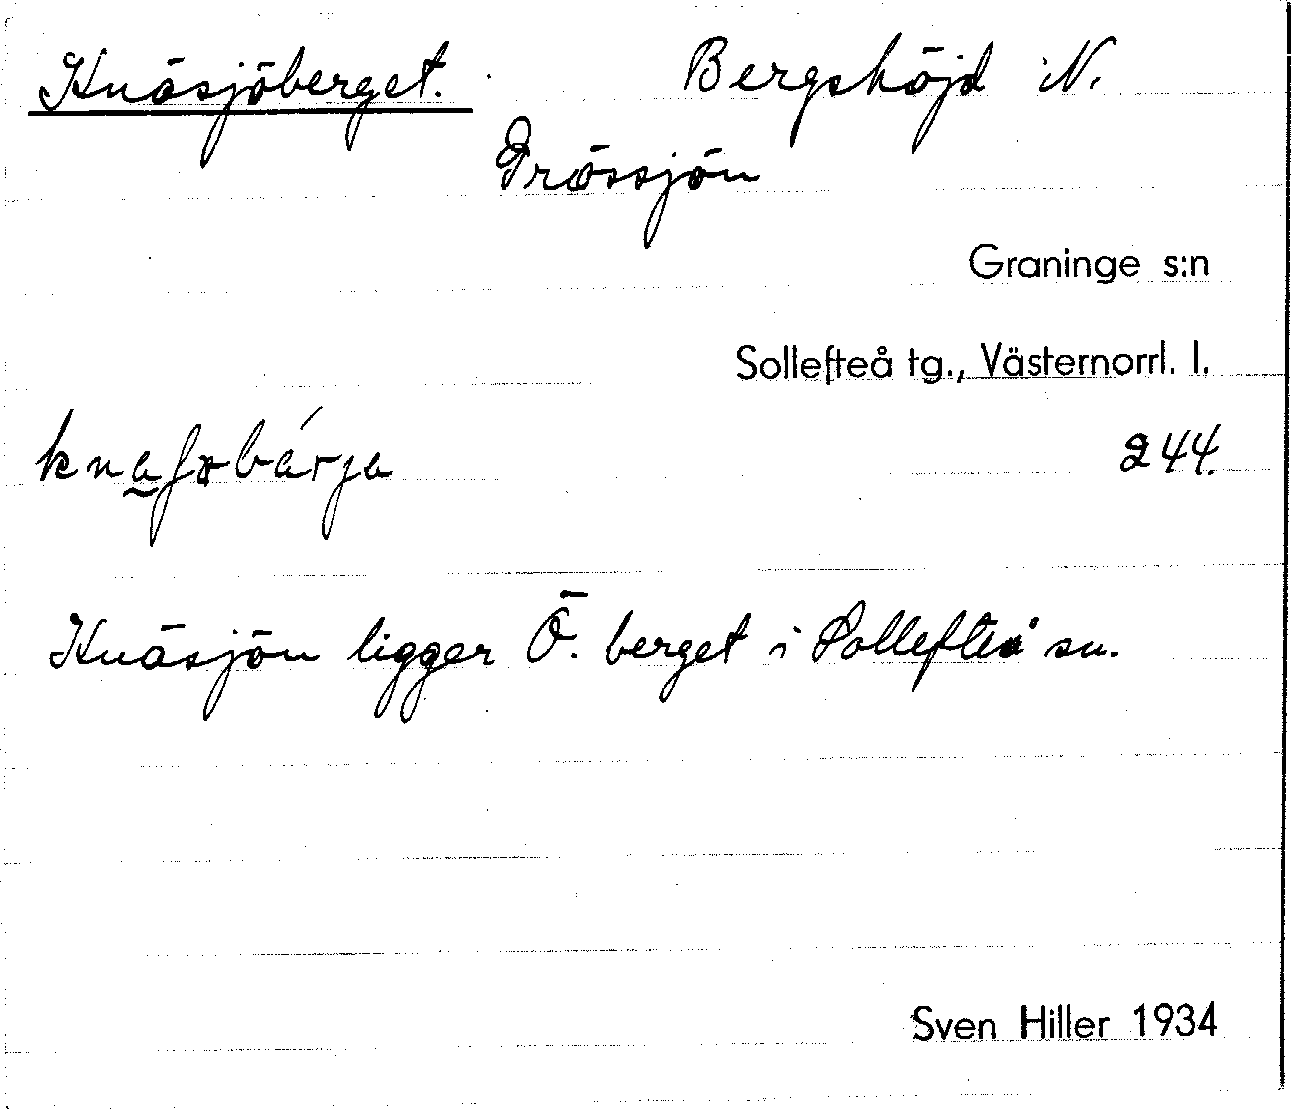 Knäsjöberget. Bergshöjd N.
Drössjön
Graninge s:n
Sollefteå tg., Västernorrl. l.
244.
Knäsjön ligger Ö. berget i Sollefteå sn.
Sven Hiller 1934